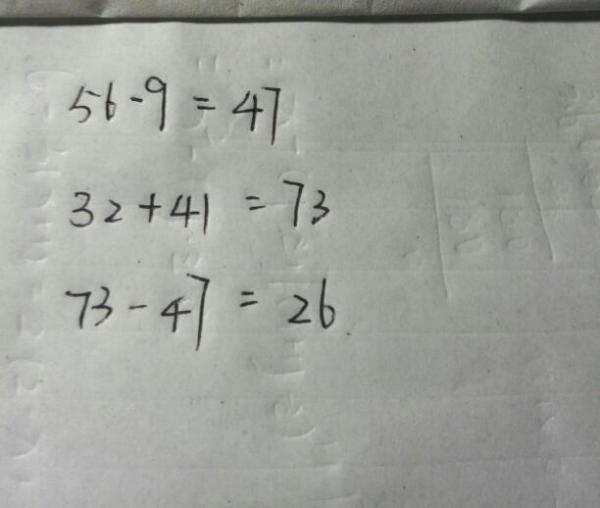 56-9=47
32+41=73
73-47=26